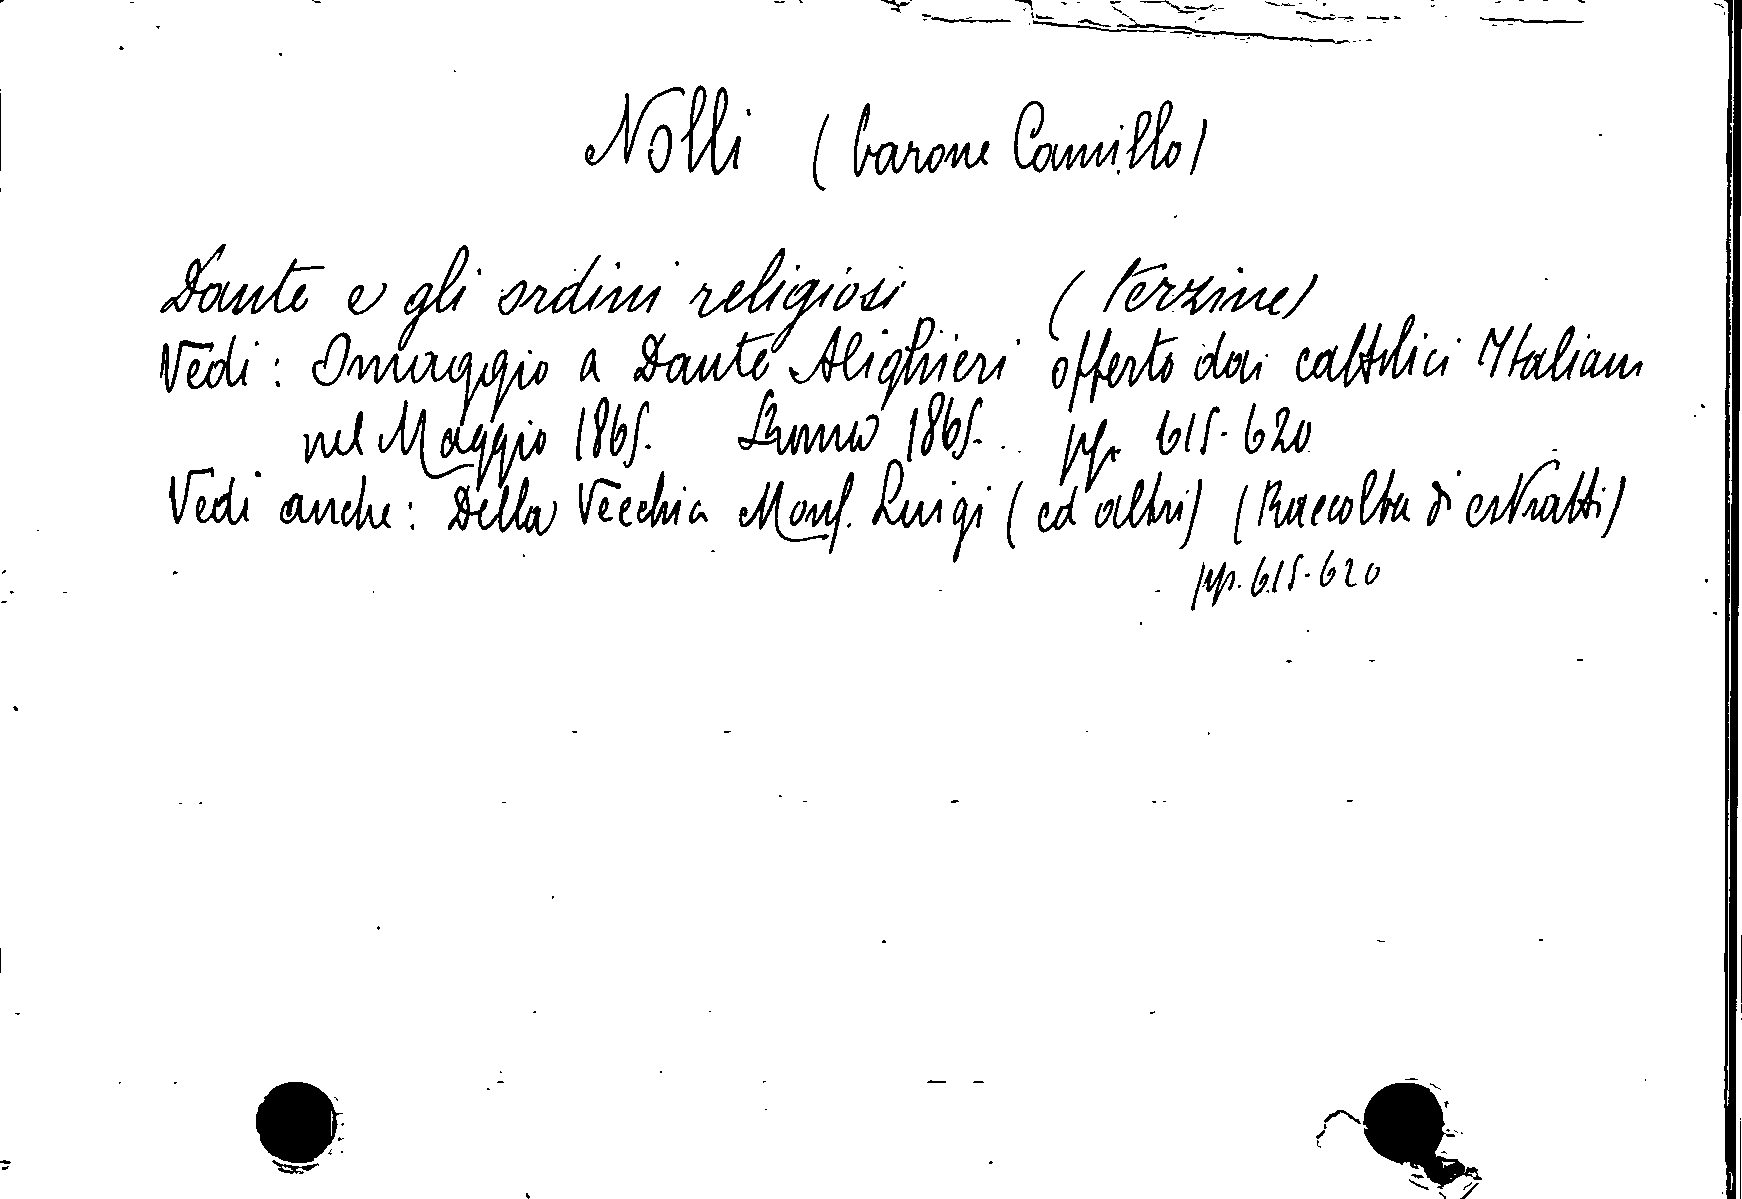 Nolli (barone Camillo)
Dante e gli ordini religiosi (terzine)
Vedi: Omaggio a Dante Alighieri offerto dai cattolici Italiani
nel Maggio 1865. Roma 1865. pp. 615-620
Vedi anche: Della Vecchia Mons. Luigi (ed altri) (Raccolta di estratti)
pp. 615-620